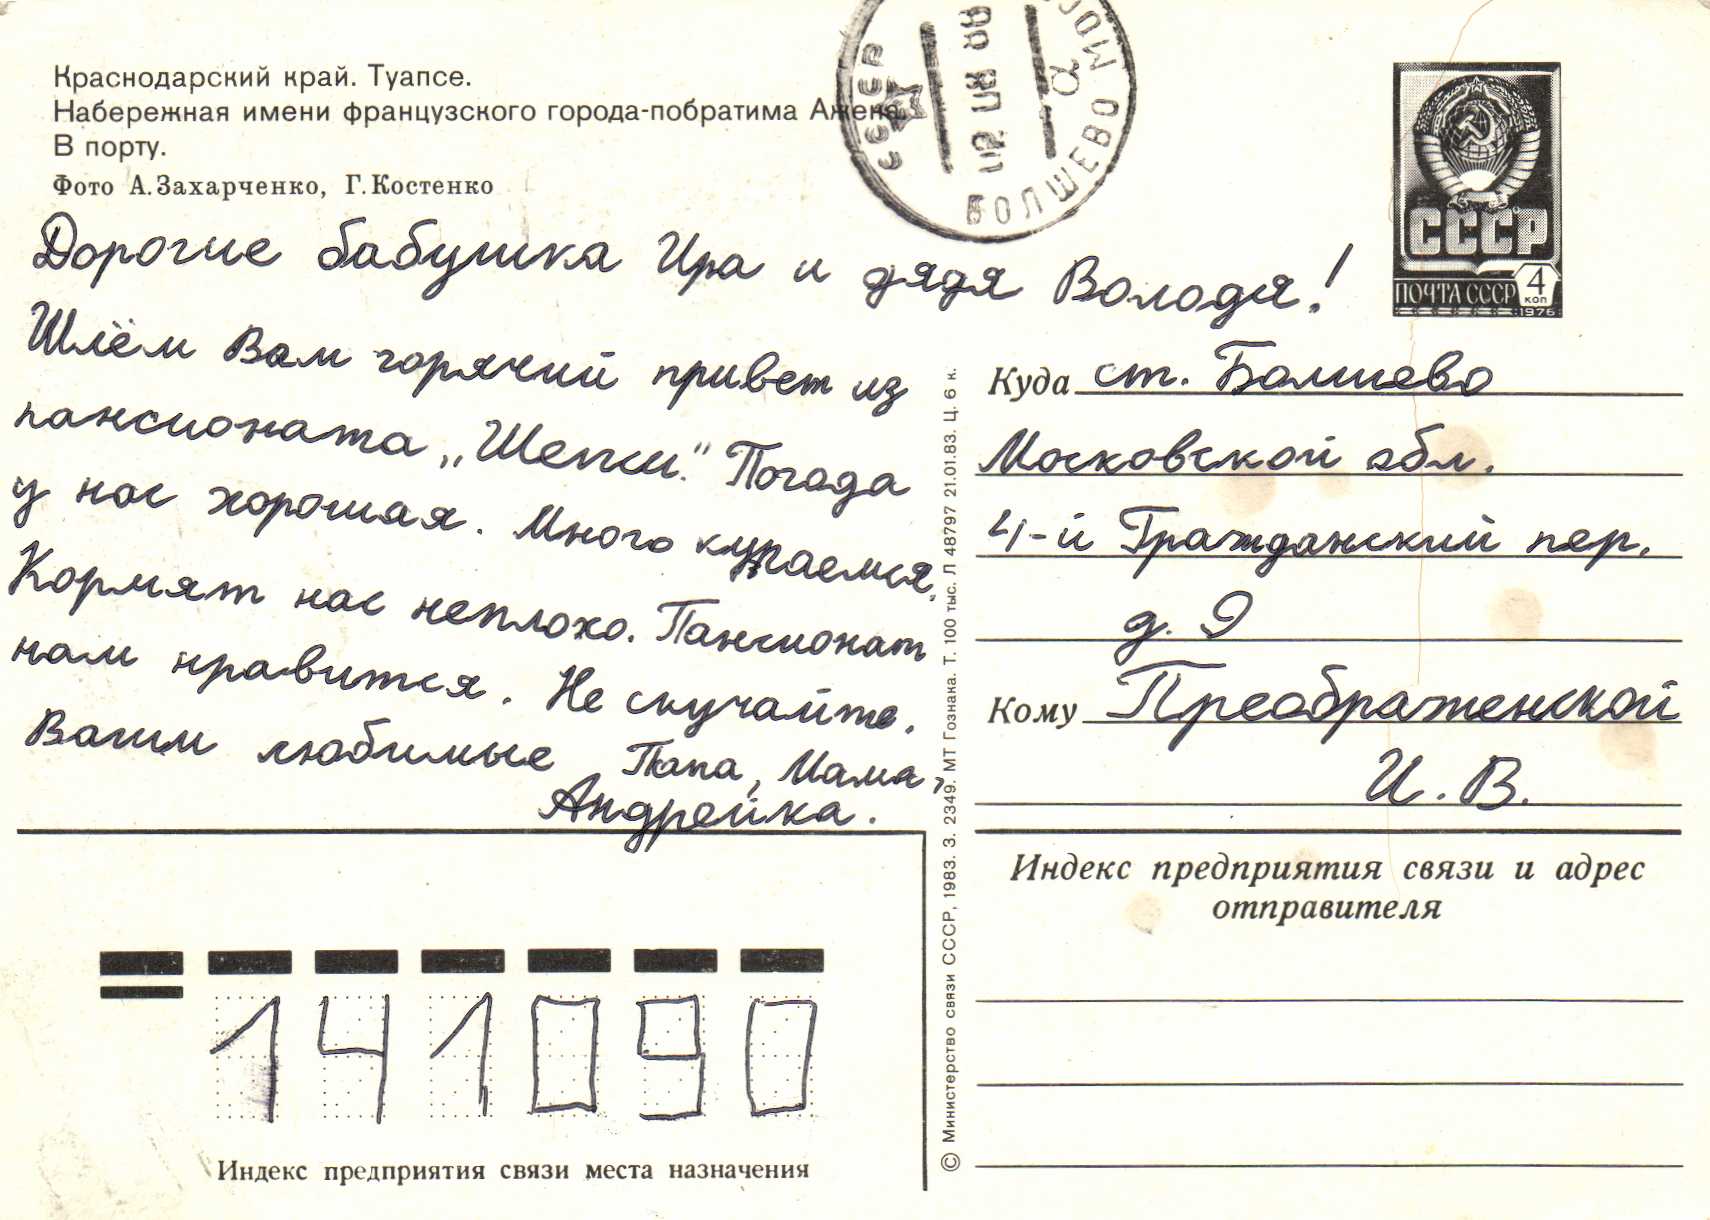 Краснодарский край. Туапсе.
Набережная имени французского города-побратима Ажена.
В порту.
Фото А. Захарченко, Г. Костенко
Дорогие бабушка Ира и дядя Володя!
Шлём Вам горячий привет из
пансионата „Шепси." Погода
у нас хорошая. Много купаемся.
Кормят нас неплохо. Пансионат
нам нравится. Не скучайте.
Ваши любимые Папа, Мама,
Андрейка.
СССР
БОЛШЕВО МОС
СССР
ПОЧТА СССР 4 КОП
1976
Куда ст. Болшево
Московской обл.
4-й Гражданский пер.
д. 9
Кому Преображенской
И. В.
Индекс предприятия связи и адрес
отправителя
© Министерство связи СССР, 1983. З. 2349. МТ Гознака. Т. 100 тыс. Л 48797 21.01.83. Ц. 6 к.
141090
Индекс предприятия связи места назначения